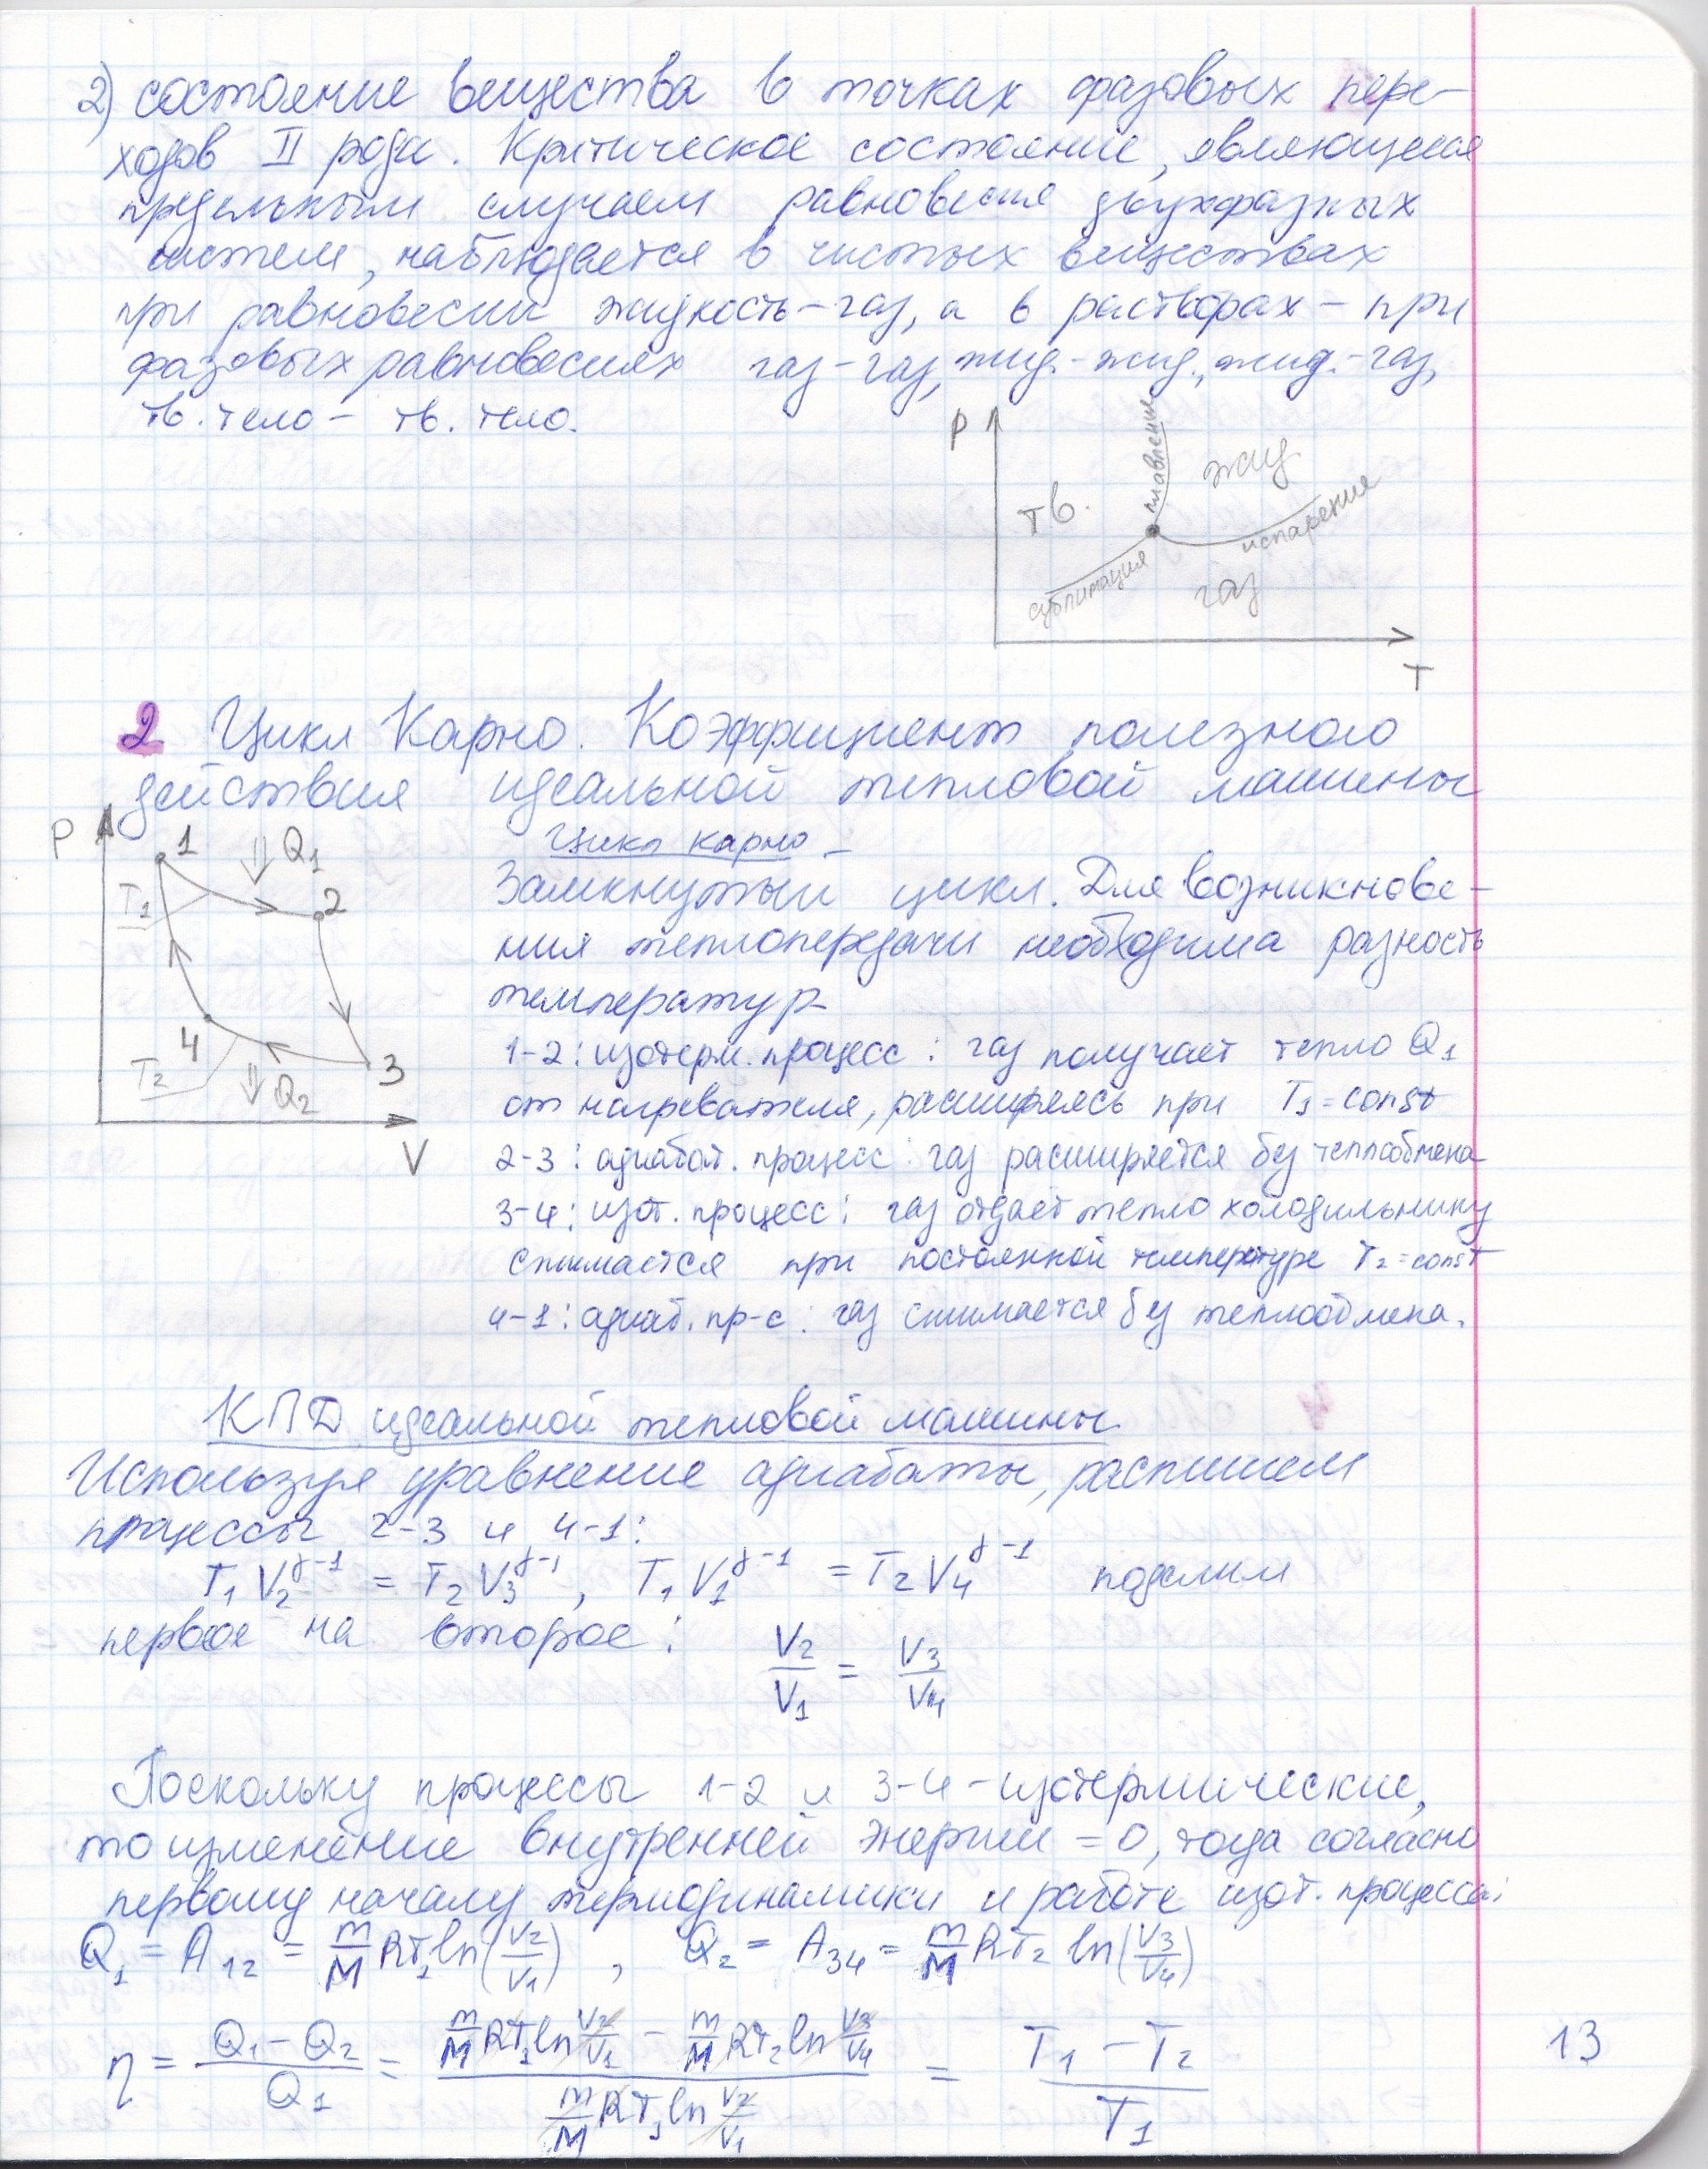 2) состояние вещества в точках фазовых пере-
ходов II рода. Критическое состояние, являющееся
предельным случаем равновесия двухфазных
систем, наблюдается в чистых веществах
при равновесии жидкость-газ, а в растворах - при
фазовых равновесиях газ-газ, жид.-жид., жид.-газ,
тв. тело - тв. тело.
P
плавление
жид
тв.
испарение
сублимация
газ
T
2 Цикл Карно. Коэффициент полезного
действия идеальной тепловой машины
P
1
Q₁
T₁
2
4
3
T₂
Q₂
V
Цикл Карно -
Замкнутый цикл. Для возникнове-
ния теплопередачи необходима разность
температур
1-2: изотерм. процесс: газ получает тепло Q₁
от нагревателя, расширяясь при T₁=const
2-3: адиабат. процесс: газ расширяется без теплообмена
3-4: изот. процесс: газ отдает тепло холодильнику
сжимается при постоянной температуре T₂=const
4-1: адиаб. пр-с: газ сжимается без теплообмена.
КПД идеальной тепловой машины
Используя уравнение адиабаты, распишем
процессы 2-3 и 4-1:
T₁V₂^γ-1 = T₂V₃^γ-1, T₁V₁^γ-1 = T₂V₄^γ-1 поделим
первое на второе: V₂/V₁ = V₃/V₄
Поскольку процессы 1-2 и 3-4 - изотермические,
то изменение внутренней энергии = 0, тогда согласно
первому началу термодинамики и работе изот. процесса:
Q₁ = A₁₂ = m/M RT₁ ln(V₂/V₁), Q₂ = A₃₄ = m/M RT₂ ln(V₃/V₄)
η = (Q₁ - Q₂)/Q₁ = (m/M RT₁ ln V₂/V₁ - m/M RT₂ ln V₃/V₄)/(m/M RT₁ ln V₂/V₁) = (T₁ - T₂)/T₁
13